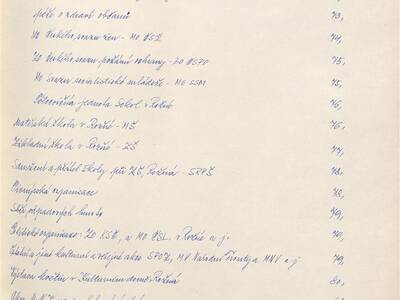 péče o zdraví občanů 73,
Ve Českého svazu žen - MO ČSŽ 74,
Ze Českého svazu požární ochrany - ZO ČSPO 75,
Ve Svazu socialistické mládeže - MO SSM 75,
Tělovýchná jednota Sokol v Rožné 76,
Mateřská škola v Rožné - MŠ 76,
Základní škola v Rožné - ZŠ 77,
Sdružení a přátel školy při ZŠ, Rožná - SRPŠ 78,
Pionýrská organisace 78,
Sběr odpadových hmot 79,
Politické organisace: ZO KSČ, a MO ČSL. v Rožné a j. 79,
Ostatní a jiné kulturní a veřejné akce SPOZ, MV Národní fronty a MNV a j 79,
Výstava květin v Kulturním domě, Rožná 80,